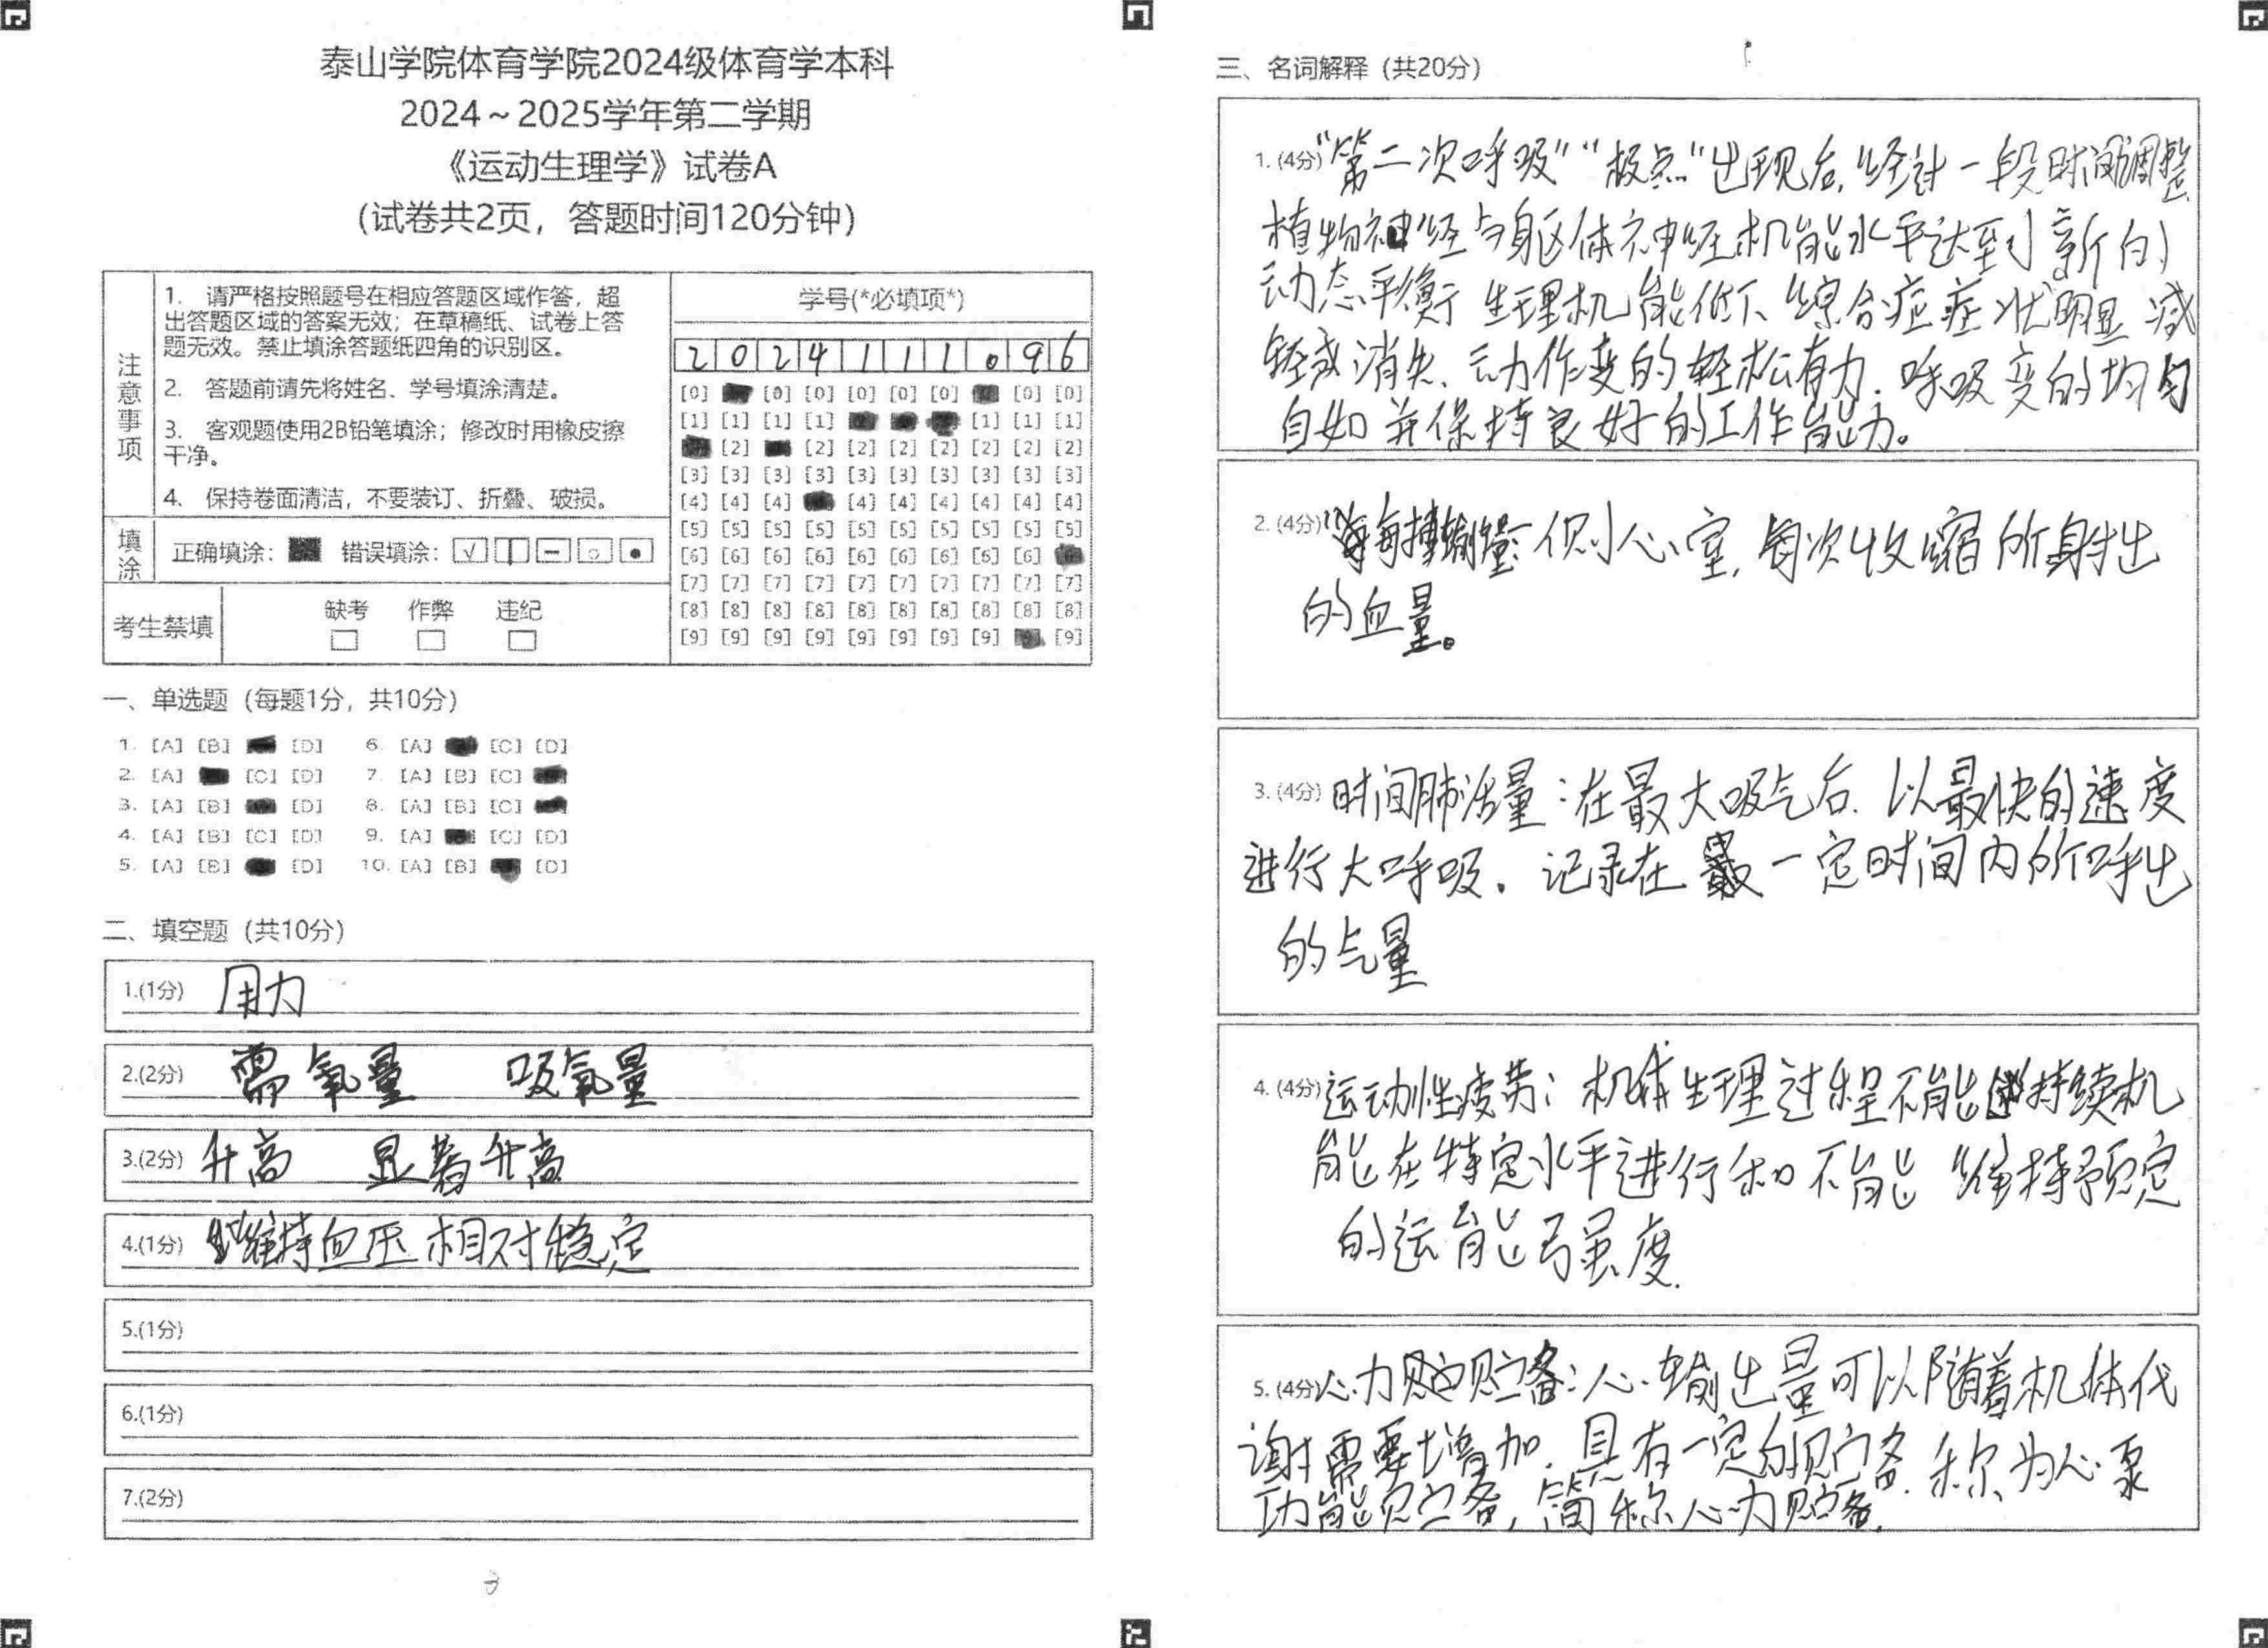 泰山学院体育学院2024级体育学本科
2024～2025学年第二学期
《运动生理学》试卷A
(试卷共2页，答题时间120分钟)
注意事项
1. 请严格按照题号在相应答题区域作答，超
出答题区域的答案无效；在草稿纸、试卷上答
题无效。禁止填涂答题纸四角的识别区。
2. 答题前请先将姓名、学号填涂清楚。
3. 客观题使用2B铅笔填涂；修改时用橡皮擦
干净。
4. 保持卷面清洁，不要装订、折叠、破损。
填涂
正确填涂： 错误填涂：
考生禁填
缺考 作弊 违纪
学号(*必填项*)
2 0 2 4 1 1 1 0 9 6
[0] [0] [0] [0] [0] [0] [0] [0]
[1] [1] [1] [1] [1] [1] [1]
[2] [2] [2] [2] [2] [2] [2] [2]
[3] [3] [3] [3] [3] [3] [3] [3] [3] [3]
[4] [4] [4] [4] [4] [4] [4] [4] [4]
[5] [5] [5] [5] [5] [5] [5] [5] [5] [5]
[6] [6] [6] [6] [6] [6] [6] [6] [6]
[7] [7] [7] [7] [7] [7] [7] [7] [7] [7]
[8] [8] [8] [8] [8] [8] [8] [8] [8] [8]
[9] [9] [9] [9] [9] [9] [9] [9] [9]
一、单选题（每题1分，共10分）
1. [A] [B] [D] 6. [A] [C] [D]
2. [A] [C] [D] 7. [A] [B] [C]
3. [A] [B] [D] 8. [A] [B] [C]
4. [A] [B] [C] [D] 9. [A] [C] [D]
5. [A] [B] [D] 10. [A] [B] [D]
二、填空题（共10分）
1.(1分) 用力
2.(2分) 需氧量 吸氧量
3.(2分) 升高 显著升高
4.(1分) 维持血压相对稳定
5.(1分)
6.(1分)
7.(2分)
三、名词解释（共20分）
1. (4分) "第二次呼吸" "极点"出现后，经过一段时间调整
植物神经与躯体神经机能水平达到新的
动态平衡 生理机能低下综合症症状明显减
轻或消失、动作变的轻松有力．呼吸变的均匀
自如并保持良好的工作能力。
2. (4分) 每搏输量：一侧心室，每次收缩所射出
的血量。
3. (4分) 时间肺活量：在最大吸气后．以最快的速度
进行大呼吸．记录在一定时间内所呼出
的气量
4. (4分) 运动性疲劳：机体生理过程不能持续机
能在特定水平进行和不能维持预定
的运能强度．
5. (4分) 心力贮备：心输出量可以随着机体代
谢需要增加．具有一定的贮备．称为心泵
功能贮备，简称心力贮备．